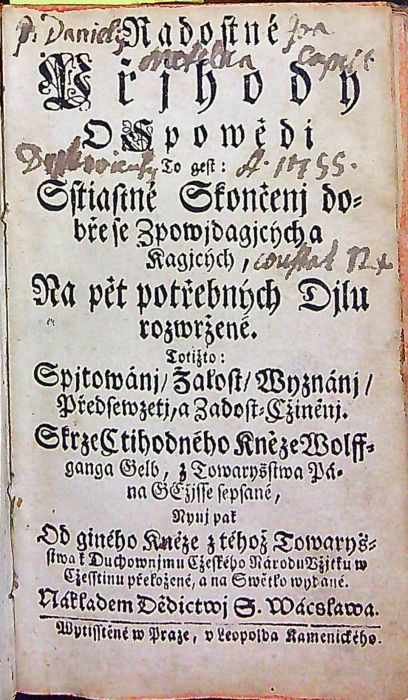 Radostné
Přjhody
O Spowědi
To gest: A. 1755.
Sstiastné Skončenj do-
bře se Zpowjdagjcých a
Kagjcých,
Na pět potřebných Djlu
rozwržené.
Totižto:
Spjtowánj/ Žalost/ Wyznánj/
Předsewzetj, a Zadost-Cžiněnj.
Skrze Ctihodného Kněze Wolff-
ganga Gelb, z Towaryšstwa Pá-
na GEžjsse sepsané,
Nynj pak
Od giného Kněze z téhož Towaryš-
stwa k Duchownjmu Cžeského Národu Vžitku w
Cžesstinu přeložené, a na Swětko wydané.
Nákladem Dědictwj S. Wácslawa.
Wytisstěné w Praze, v Leopolda Kamenického.